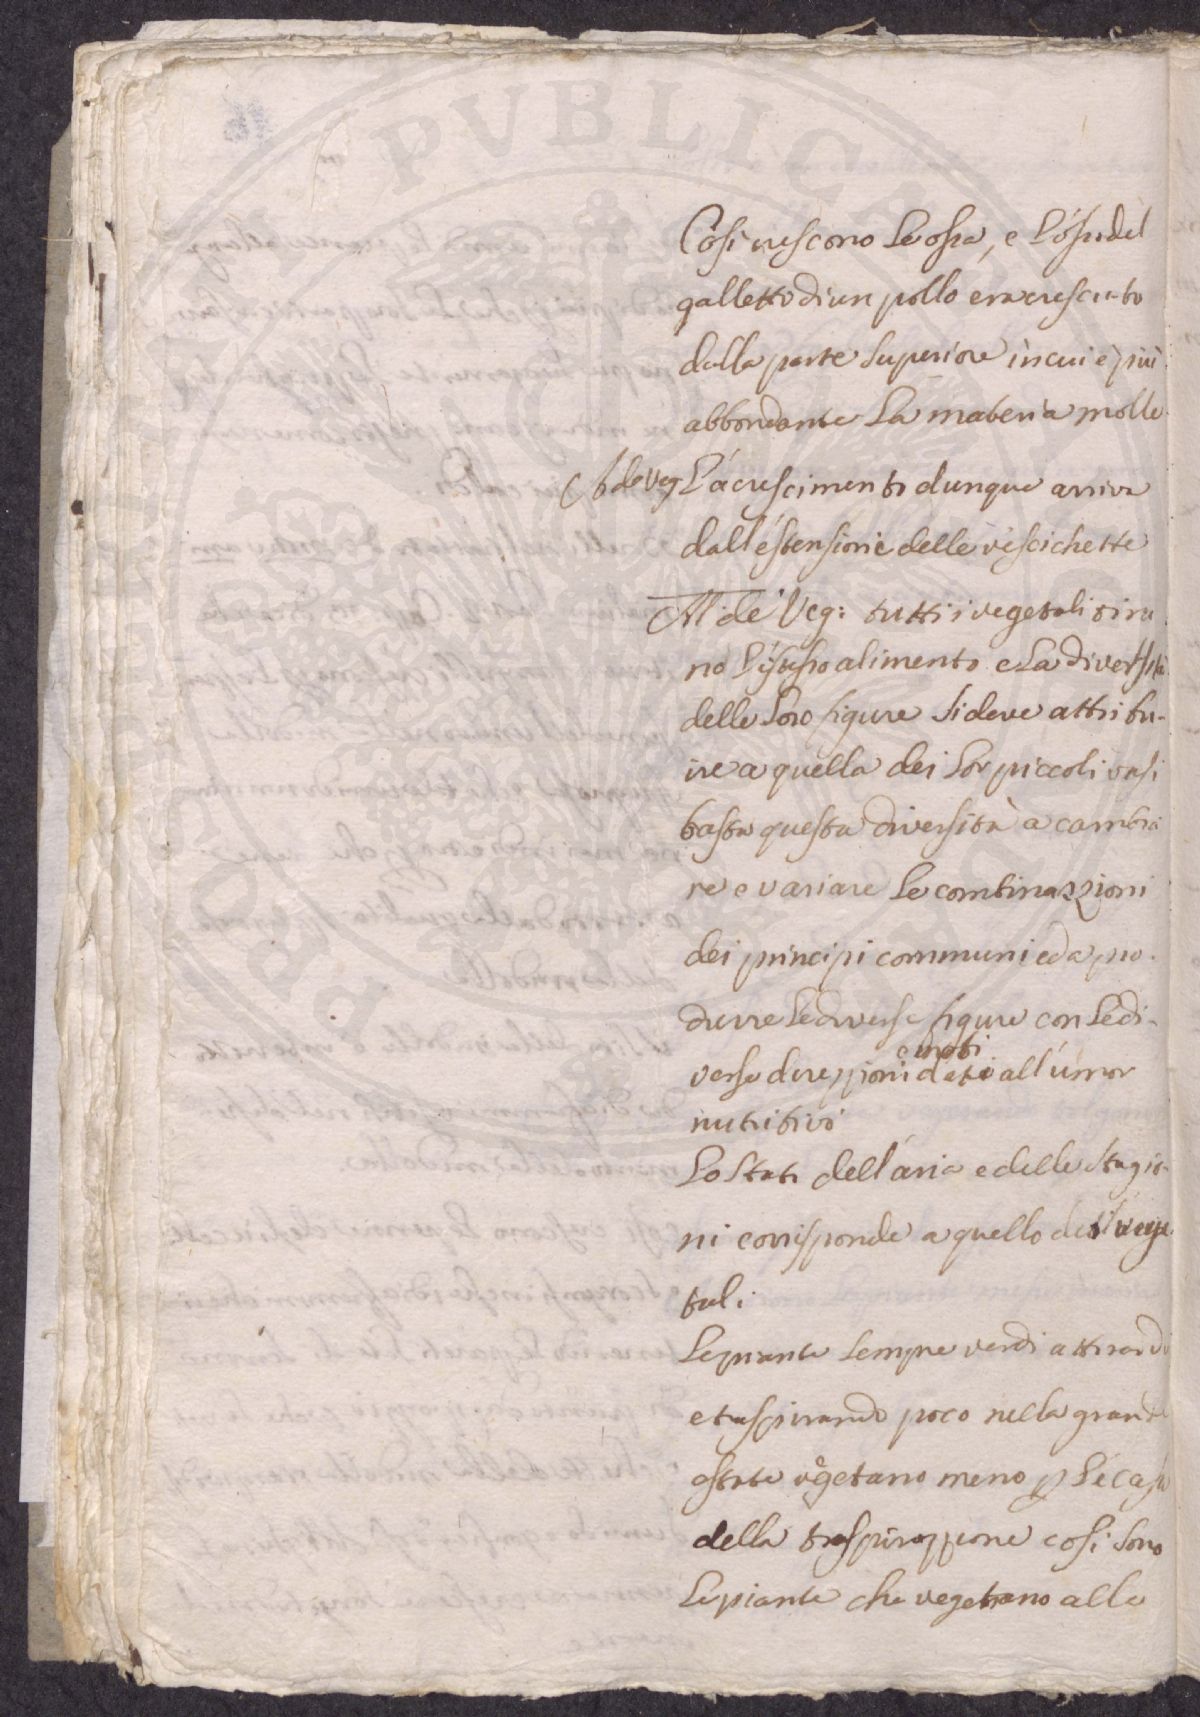 PVBLICA
Cosi crescono le ossa, e l'ossu del
galletto di un pollo era cresciuto
dalla parte superiore in cui è più
abbondante la materia molle
A de Veg L'acrescimento dunque arriva
dall'estensione delle vescichette
Al de Veg: tutti i vegetali tira
no l'istesso alimento e la diversità
delle loro figure si deve attribu-
ire a quella dei lor piccoli vasi
basta questa diversità a cambia
re e variare le combinazzioni
dei principi communi ed a pro-
durre le diverse figure con le di-
e moti
verse direzzioni date all'umor
nutritivo
Lo stato dell'aria e delle stagio-
ni corrisponde a quello dei vege
tali
Le piante sempre verdi attirando
e traspirando poco nella grande
estate vegetano meno p l'ecasso
della traspirazzione cosi sono
Le piante che vegetano alle